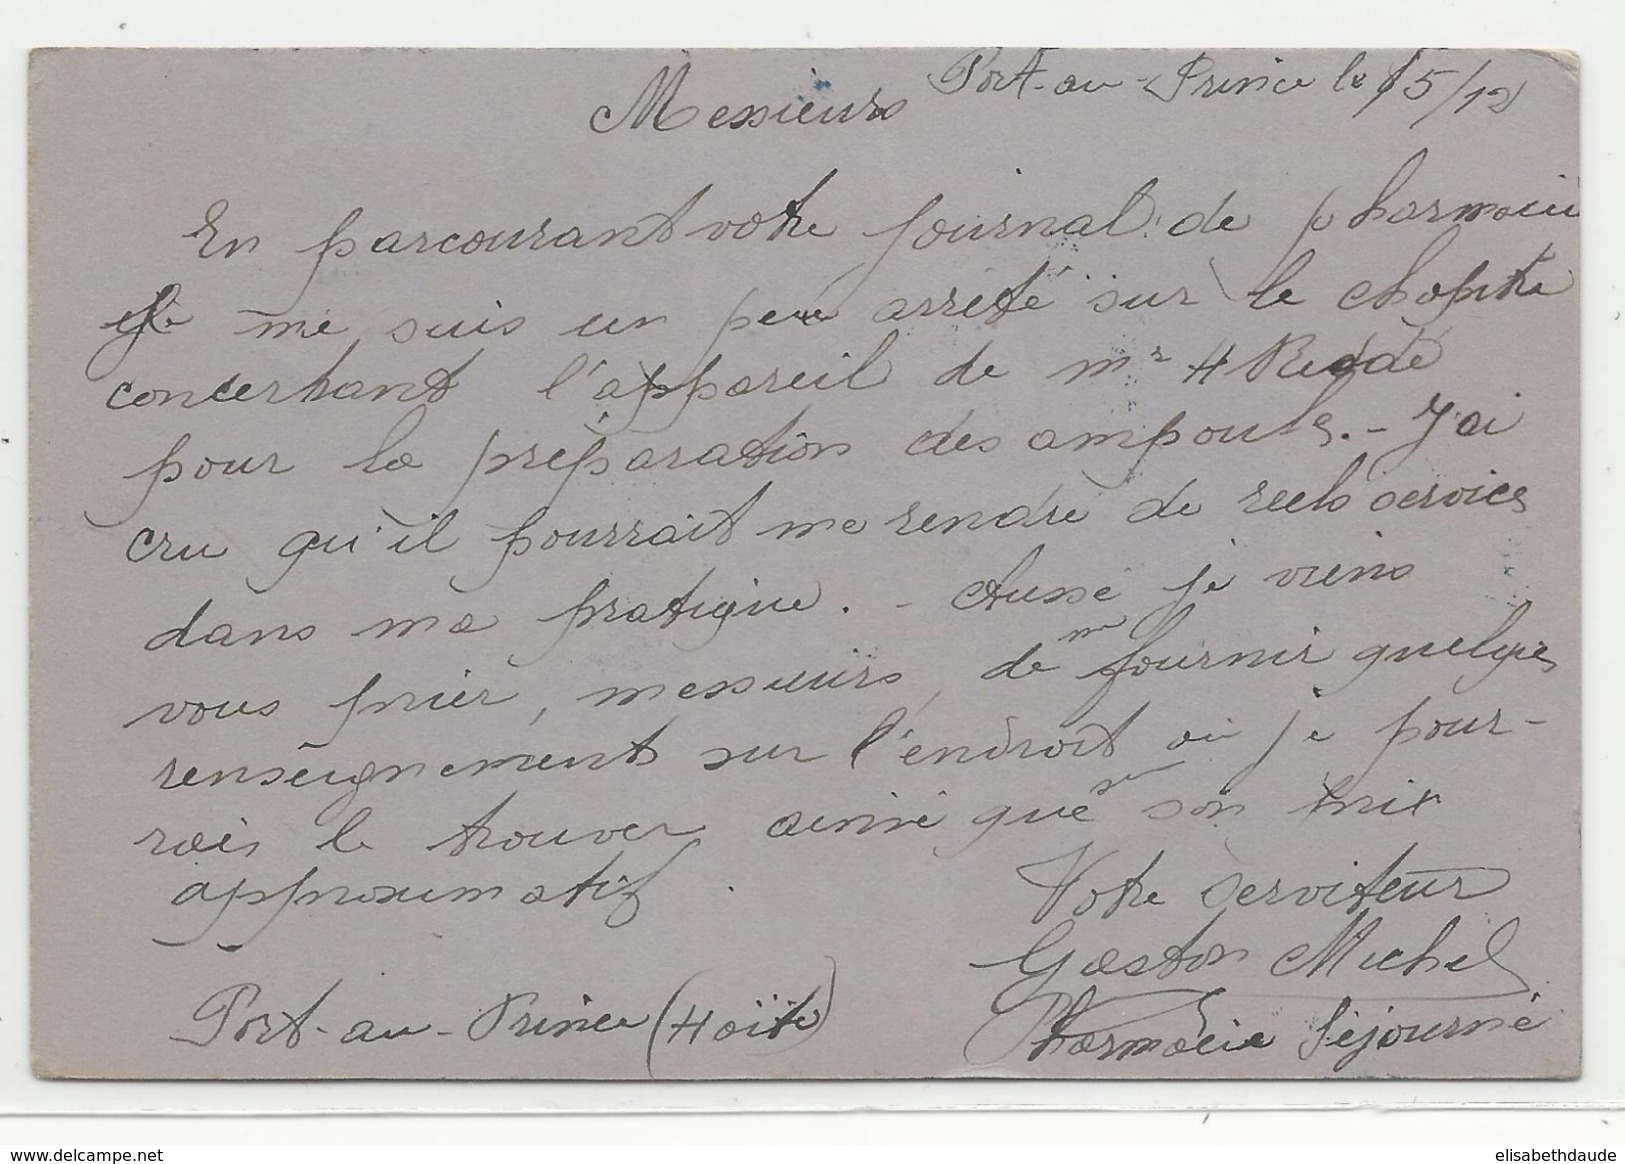 Port-au-Prince le 15/12
Messieurs
En parcourant votre journal de pharmacie
je me suis un peu arrêté sur le chapitre
concernant l'appareil de Mr H
pour la préparation des ampouls. - J'ai
cru qu'il pourrait me rendre de reels services
dans ma pratique. - Aussi je viens
vous prier, messieurs, de m fournir quelques
renseignements sur l'endroit où je pour-
rais le trouver ainsi que son prix
approximatif.
Votre serviteur
Gaston Michel
Port-au-Prince (Haïti)
Pharmacie Séjourné
www.delcampe.net
elisabethdaude